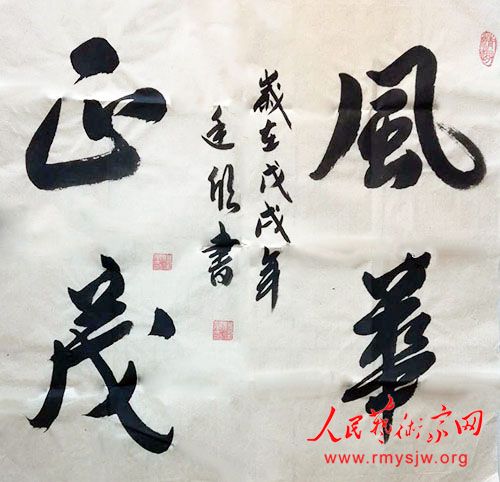 風華
正茂
歲在戊戌年
廷欣書
人民藝術家网
www.rmysjw.org